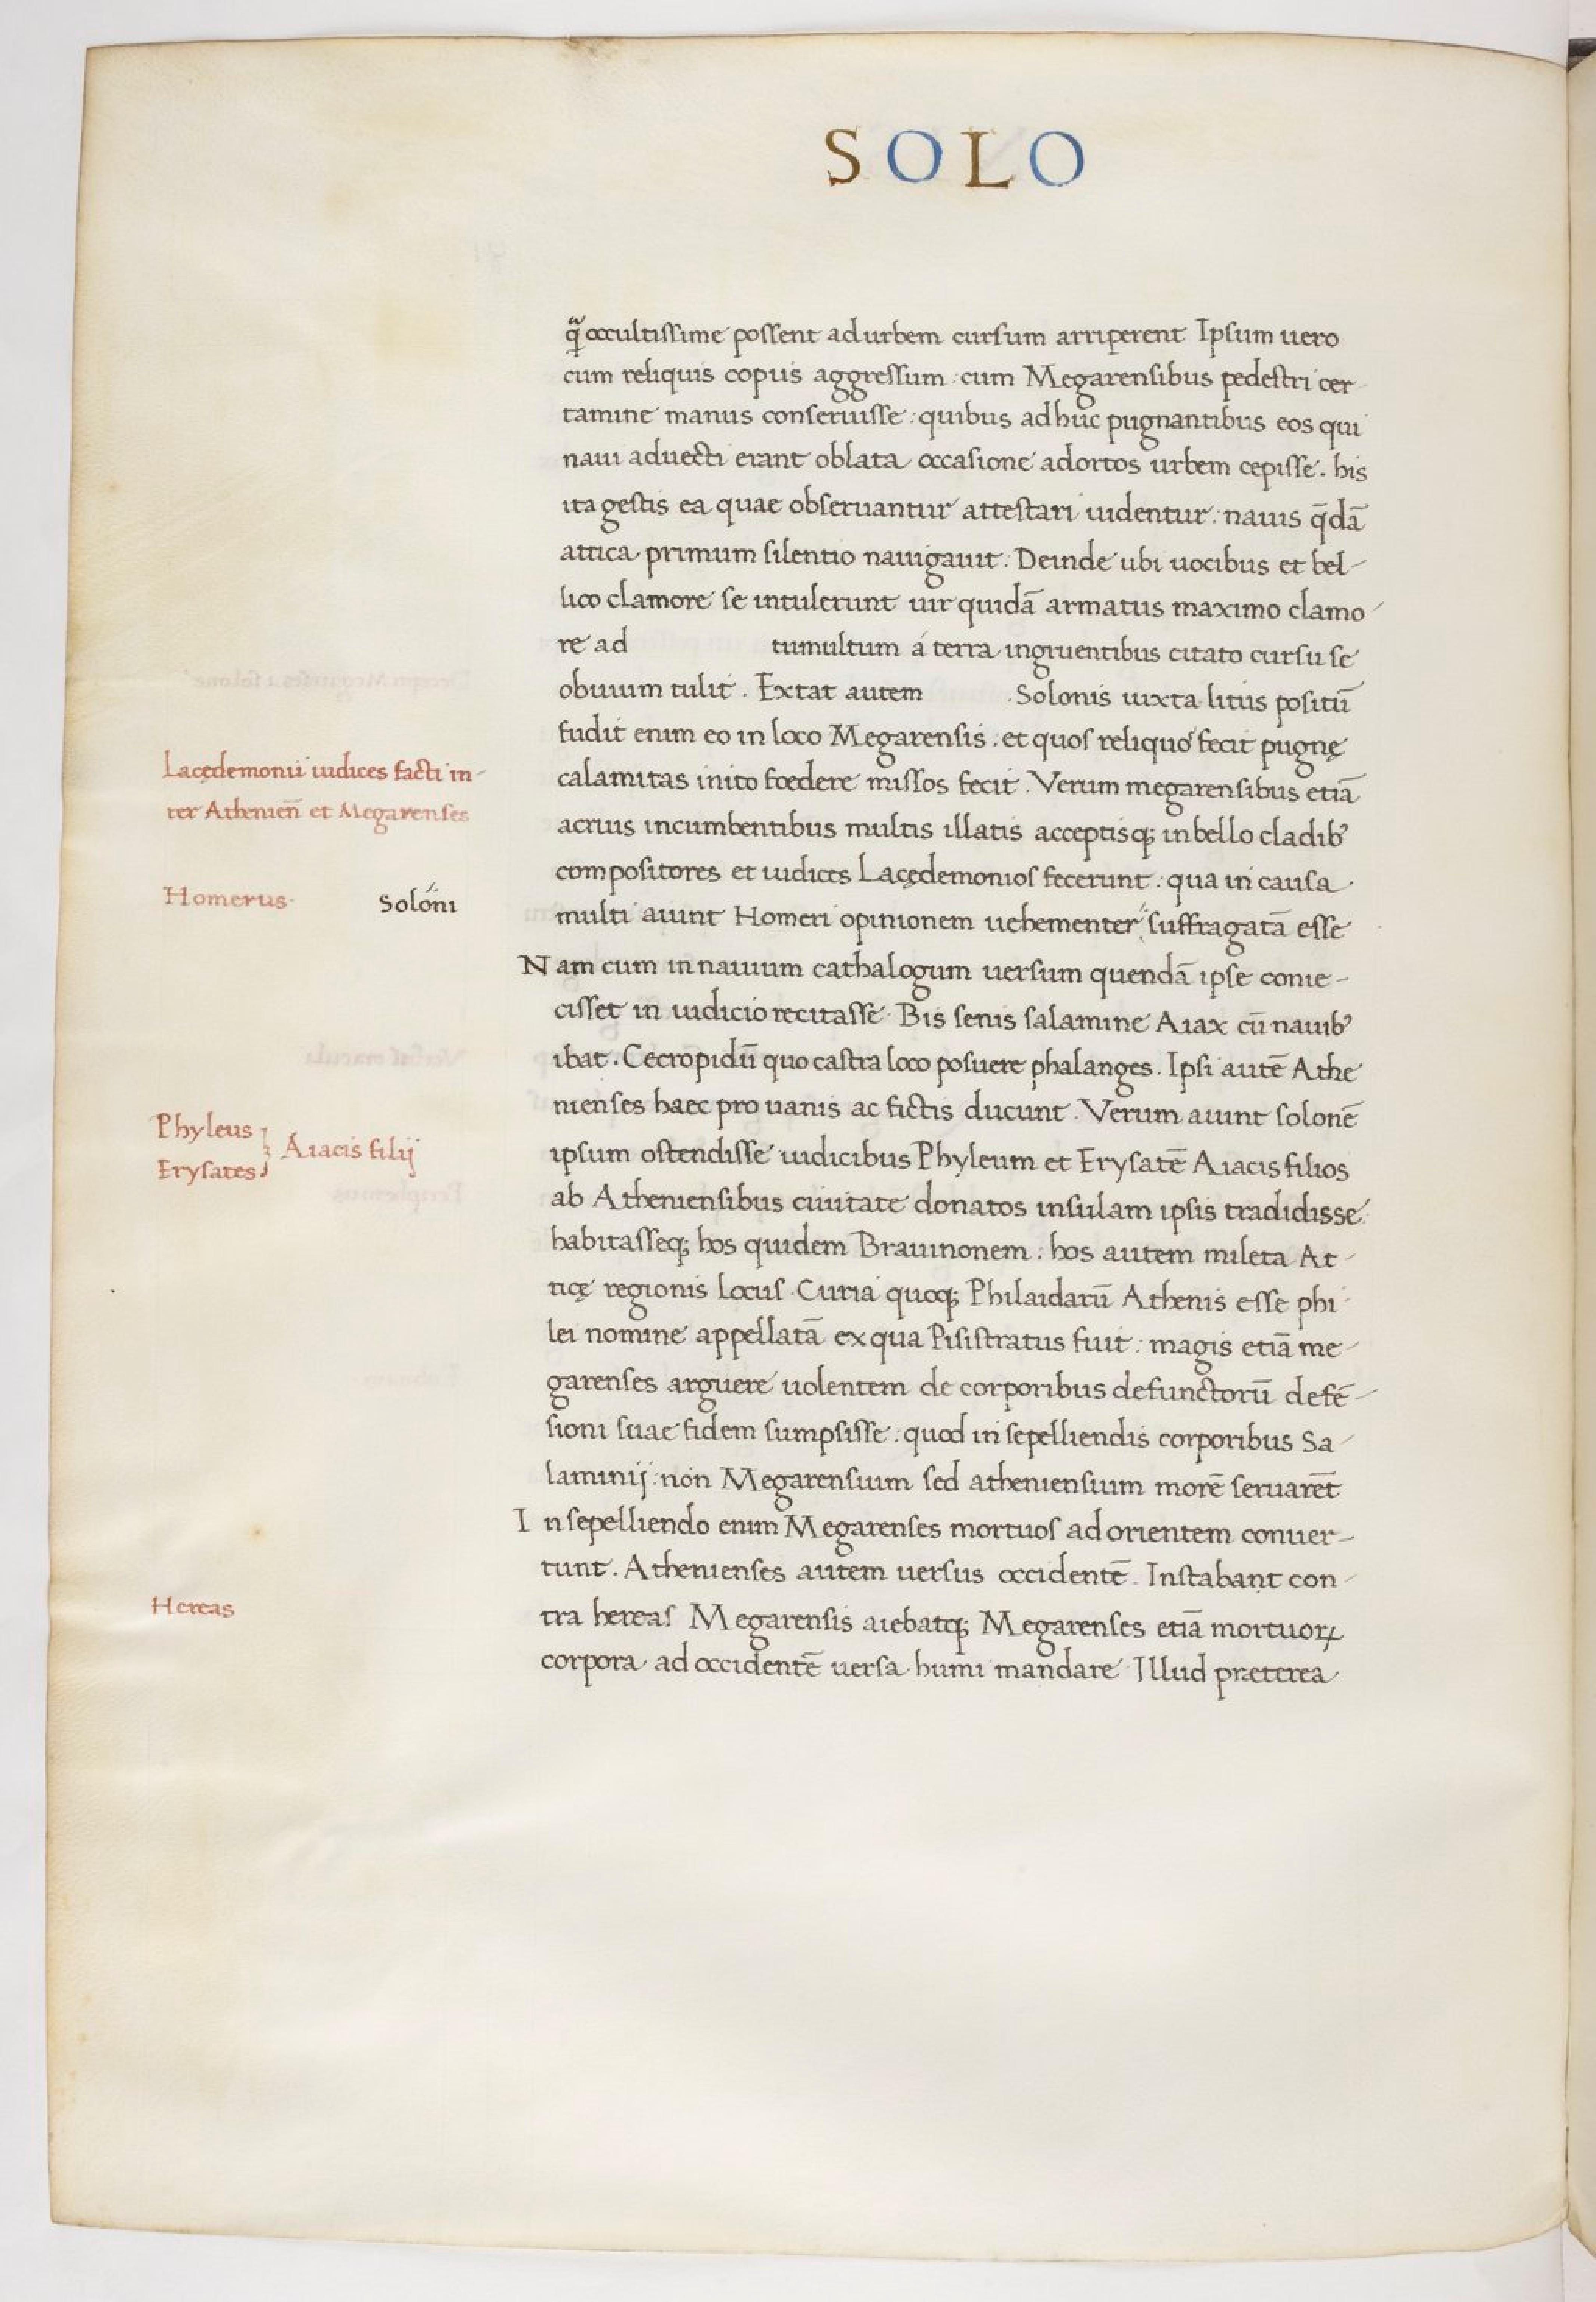 SOLO
q̃ occultissime possent ad urbem cursum arriperent Ipsum uero
cum reliquis copiis aggressum : cum Megarensibus pedestri cer
tamine manus conseruisse : quibus adhuc pugnantibus eos qui
naui aduecti erant oblata occasione adortos urbem cepisse . his
ita gestis ea quae obseruantur attestari uidentur : nauis q̄dā
attica primum silentio nauigauit : Deinde ubi uocibus et bel-
lico clamore se intulerunt uir quidā armatus maximo clamo-
re ad tumultum á terra ingruentibus citato cursu se
obuium tulit . Extat autem . Solonis iuxta litus positū
fudit enim eo in loco Megarensis : et quos reliquos fecit pugnę
Lacędemonii iudices facti in-
ter Athenieñ et Megarenses
calamitas inito foedere missos fecit . Verum megarensibus etiā
acrius incumbentibus multis illatis acceptisq; in bello cladib9
compositores et iudices Lacędemonios fecerunt : qua in causa
Homerus
Soloni
multi aiunt Homeri opinionem uehementer suffragatā esse
Nam cum in nauium cathalogum uersum quendā ipse conie-
cisset in iudicio recitasse . Bis senis salamine Aiax cū nauib9
ibat . Cecropidū quo castra loco posuere phalanges . Ipsi autē Athe
nienses haec pro uanis ac fictis ducunt . Verum aiunt solonē
Phyleus
Erysates
Aiacis filij
ipsum ostendisse iudicibus Phyleum et Erysatē Aiacis filios
ab Atheniensibus ciuitate donatos insulam ipsis tradidisse :
habitasseq; hos quidem Brauinonem : hos autem mileta At-
ticę regionis locus . Curia quoq; Philaidarū Athenis esse phi-
lei nomine appellatā ex qua Pisistratus fuit : magis etiā me-
garenses arguere uolentem de corporibus defunctorū defē-
sioni suae fidem sumpsisse : quod in sepelliendis corporibus Sa-
laminij : non Megarensium sed atheniensium morē seruarēt
In sepelliendo enim Megarenses mortuos ad orientem conuer-
tunt . Athenienses autem uersus occidentē . Instabant con-
Hereas
tra hereas Megarensis aiebatq; Megarenses etiā mortuoꝝ
corpora ad occidentē uersa humi mandare Illud præterea